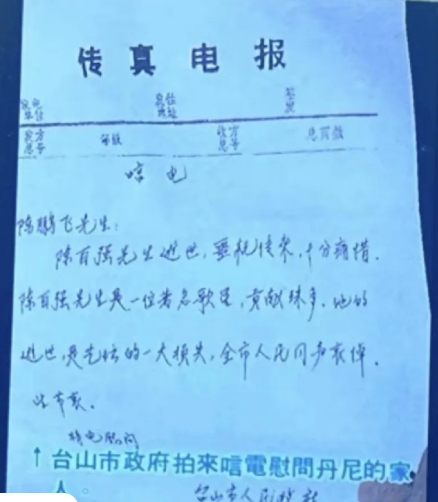 传真电报
发电单位
发往地址
签发
发方总号
等级
收方总号
总页数
唁电
陈鹏飞先生:
陈百强先生逝世,噩耗传来,十分痛惜.
陈百强先生是一位著名歌星,贡献殊多.他的
逝世,是志坛的一大损失,全市人民同声哀悼.
此节哀.
特电慰问
↑台山市政府拍來唁電慰問丹尼的家
人。
台山市人民政府